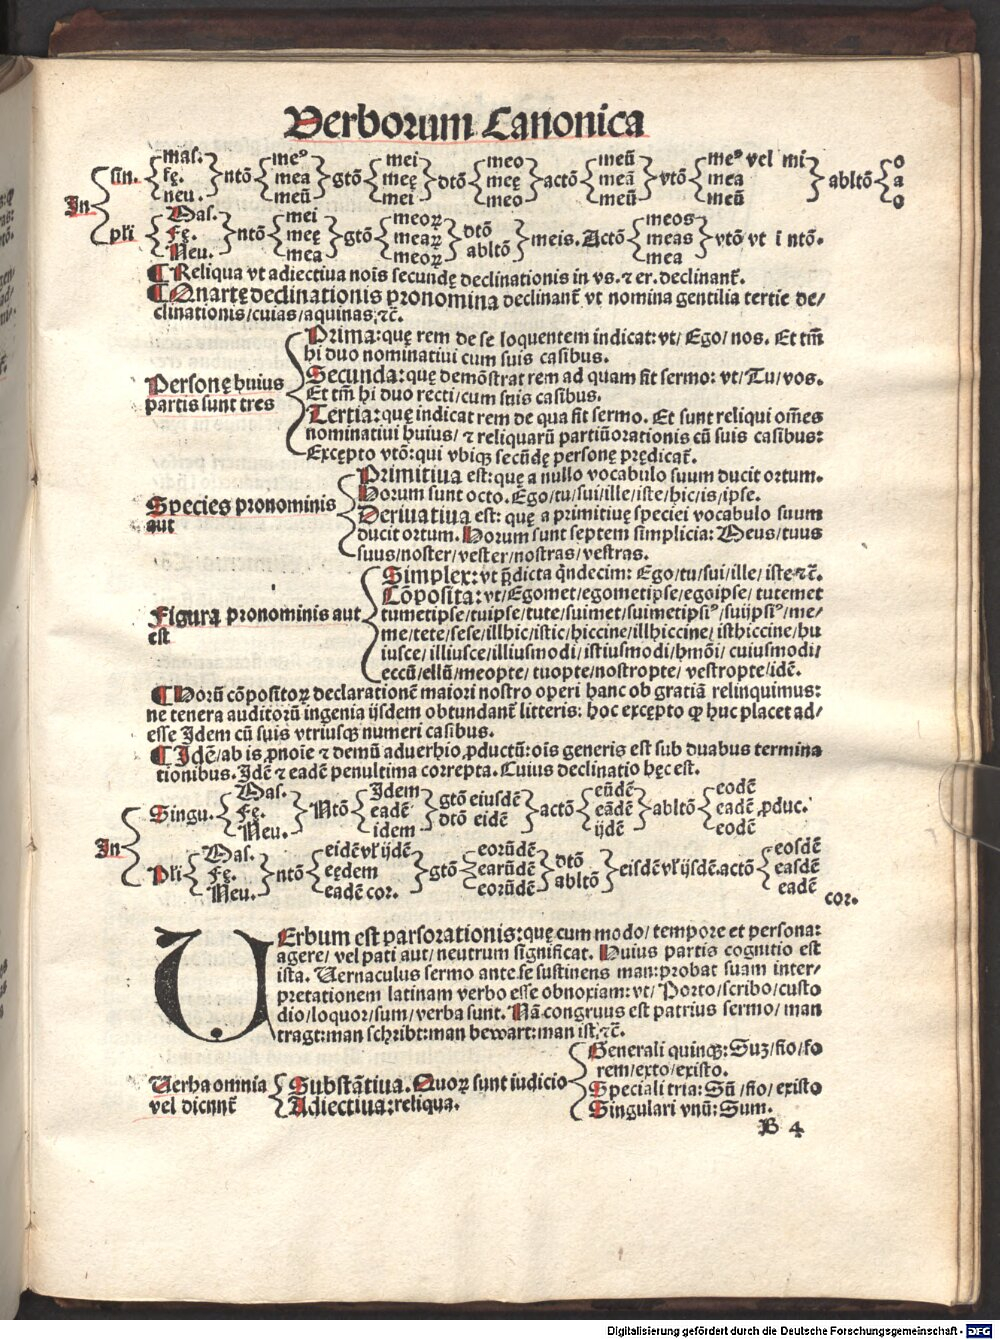 Verborum Canonica
In sin. mas. fę. neu. ntō meꝰ mea meū gtō mei meę mei dtō meo meę meo actō meū meā meū vtō meꝰ vel mi mea meū abltō o a o
plī Mas. Fę. Neu. ntō mei meę mea gtō meoꝝ meaꝝ meoꝝ dtō abltō meis. Actō meos meas mea vtō vt i ntō.
¶ Reliqua vt adiectiua nois secundę declinationis in vs. ⁊ er. declinanť.
¶ Quartę declinationis pronomina declinanť vt nomina gentilia tertie de/
clinationis/cuias/aquinas/⁊c̄.
Personę huius
partis sunt tres
Prima: quę rem de se loquentem indicat: vt/ Ego/ nos. Et tm̄
hi duo nominatiui cum suis casibus.
Secunda: quę demōstrat rem ad quam fit sermo: vt/ Tu/ vos.
Et tm̄ hi duo recti/cum suis casibus.
Tertia: quę indicat rem de qua fit sermo. Et sunt reliqui om̄es
nominatiui huius/ ⁊ reliquarū partiū orationis cū suis casibus:
Excępto vtō: qui vbiqꝫ secūdę personę prędicať.
Species pronominis
aut
Primitiua est: quę a nullo vocabulo suum ducit ortum.
Horum sunt octo. Ego/tu/sui/ille/iste/hic/is/ipse.
Deriuatiua est: quę a primitiuę speciei vocabulo suum
ducit ortum. Horum sunt septem simplicia: Meus/tuus
suus/noster/vester/nostras/vestras.
Figura pronominis aut
est
Simplex: vt p̄dicta q̄ndecim: Ego/tu/sui/ille/ iste ⁊c̄.
Cōposita: vt/ Egomet/egometipse/egoipse/ tutemet
tumetipse/tuipse/tute/suimet/suimetipsiꝰ/suiipsiꝰ/me/
me/tete/sese/illhic/istic/hiccine/illhiccine/ isthiccine/hu
iusce/illiusce/illiusmodi/istiusmodi/hmōi/ cuiusmodi/
eccū/ellū/meopte/ tuopte/nostropte/ vestropte/idē.
¶ Horū cōpositoꝝ declarationē maiori nostro operi hanc ob gratiā relinquimus:
ne tenera auditorū ingenia ijsdem obtundanť litteris: hoc excępto ꝙ huc placet ad/
esse Idem cū suis vtriusqꝫ numeri casibus.
¶ Idē/ab is ꝓnoie ⁊ demū aduerbio ꝓductū: ois generis est sub duabus termina
tionibus. Idē ⁊ eadē penultima correpta. Cuius declinatio hęc est.
In Singu. Mas. Fę. Neu. Ntō Idem eadē idem gtō eiusdē dtō eidē actō eūdē eādē ijdē abltō eodē eadē ꝓduc. eodē
Plī Mas. Fę. Neu. ntō eidē vl̓ ijdē eędem eadē cor. gtō eorūdē earūdē eorūdē dtō abltō eisdē vl̓ ijsdē. actō eosdē easdē eadē cor.
VErbum est pars orationis: quę cum modo/ tempore et persona:
agere/ vel pati aut/ neutrum significat. Huius partis cognitio est
ista. Vernaculus sermo ante se sustinens man: probat suam inter/
pretationem latinam verbo esse obnoxiam: vt/ Porto/scribo/custo
dio/loquor/sum/ verba sunt. Nā congruus est patrius sermo/ man
tragt: man schribt: man bewart: man ist/ ⁊c̄.
Verba omnia
vel dicunť
Substātiua. Quoꝝ sunt iudicio
Adiectiua: reliqua.
Generali quinqꝫ: Suꝫ/fio/fo
rem/exto/existo.
Speciali tria: Sū /fio/ existo
Singulari vnū: Sum.
B 4
Digitalisierung gefördert durch die Deutsche Forschungsgemeinschaft - DFG